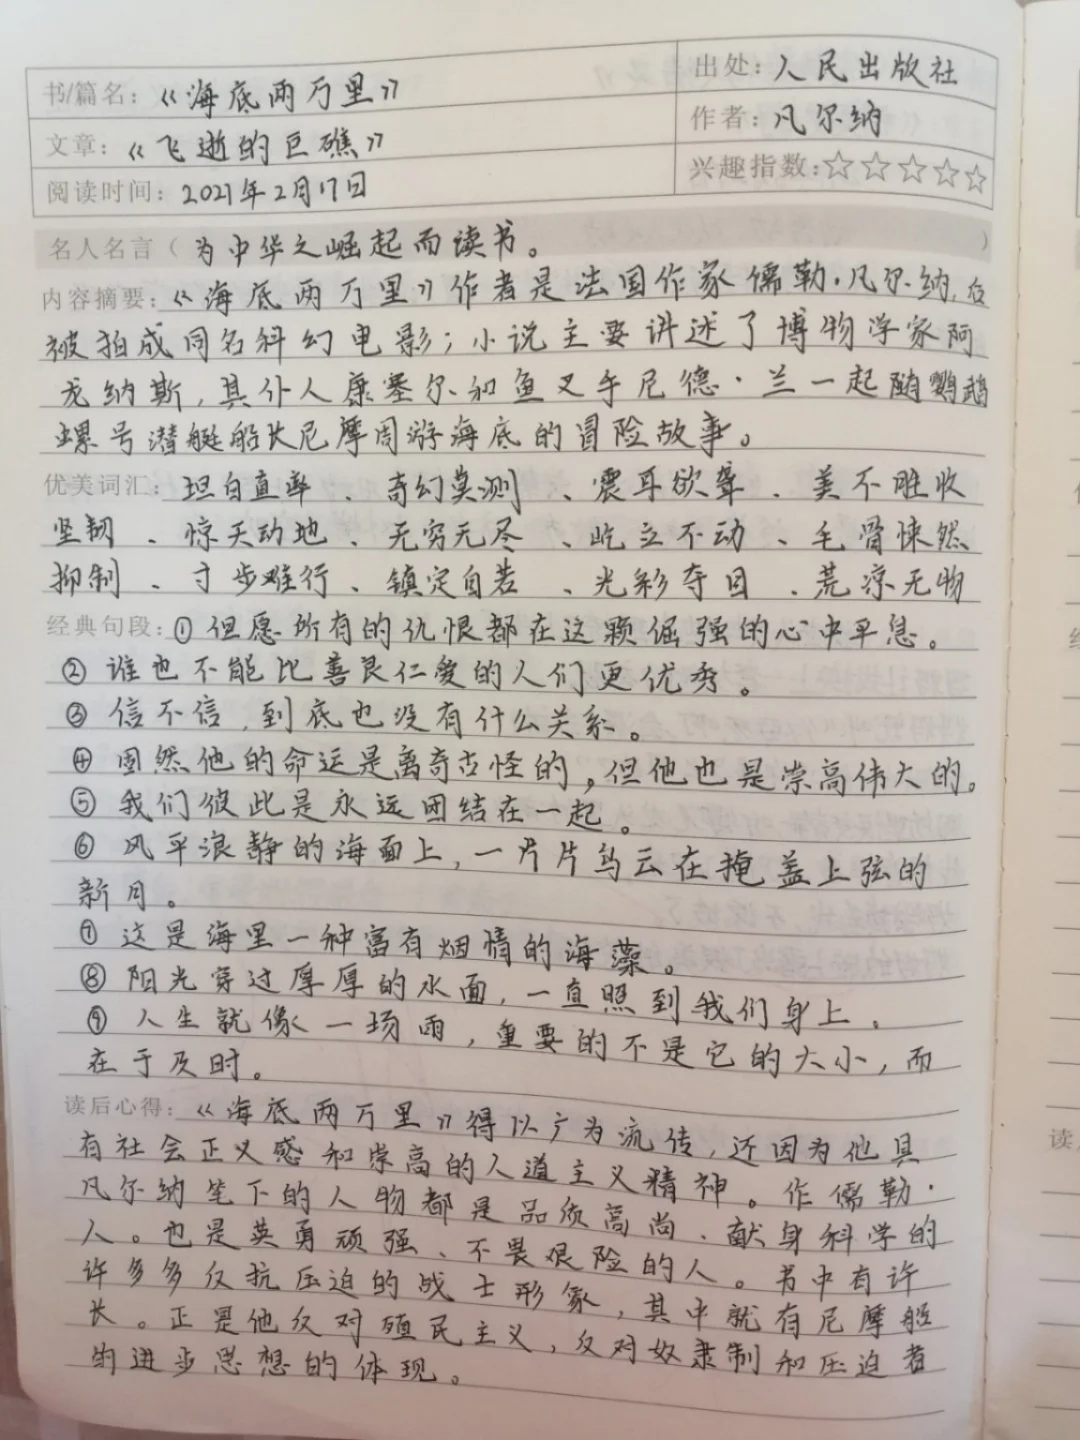 书/篇名：《海底两万里》
出处：人民出版社
文章：《飞逝的巨礁》
作者：凡尔纳
阅读时间：2021年2月17日
兴趣指数：☆☆☆☆☆
名人名言（为中华之崛起而读书。）
内容摘要：《海底两万里》作者是法国作家儒勒·凡尔纳，后
被拍成同名科幻电影；小说主要讲述了博物学家阿
龙纳斯，其仆人康塞尔和鱼叉手尼德·兰一起随鹦鹉
螺号潜艇船长尼摩周游海底的冒险故事。
优美词汇：坦白直率、奇幻莫测、震耳欲聋、美不胜收
坚韧、惊天动地、无穷无尽、屹立不动、毛骨悚然
抑制、寸步难行、镇定自若、光彩夺目、荒凉无物
经典句段：①但愿所有的仇恨都在这颗倔强的心中平息。
②谁也不能比善良仁爱的人们更优秀。
③信不信，到底也没有什么关系。
④固然他的命运是离奇古怪的。但他也是崇高伟大的。
⑤我们彼此是永远团结在一起。
⑥风平浪静的海面上，一片片乌云在掩盖上弦的
新月。
⑦这是海里一种富有烟情的海藻。
⑧阳光穿过厚厚的水面，一直照到我们身上，
⑨人生就像一场雨，重要的不是它的大小，而
在于及时。
读后心得：《海底两万里》得以广为流传，还因为他具
有社会正义感和崇高的人道主义精神。作儒勒·
凡尔纳笔下的人物都是品质高尚、献身科学的
人。也是英勇顽强、不畏艰险的人。书中有许
许多多反抗压迫的战士形象，其中就有尼摩船
长。正是他反对殖民主义，反对奴隶制和压迫者
的进步思想的体现。